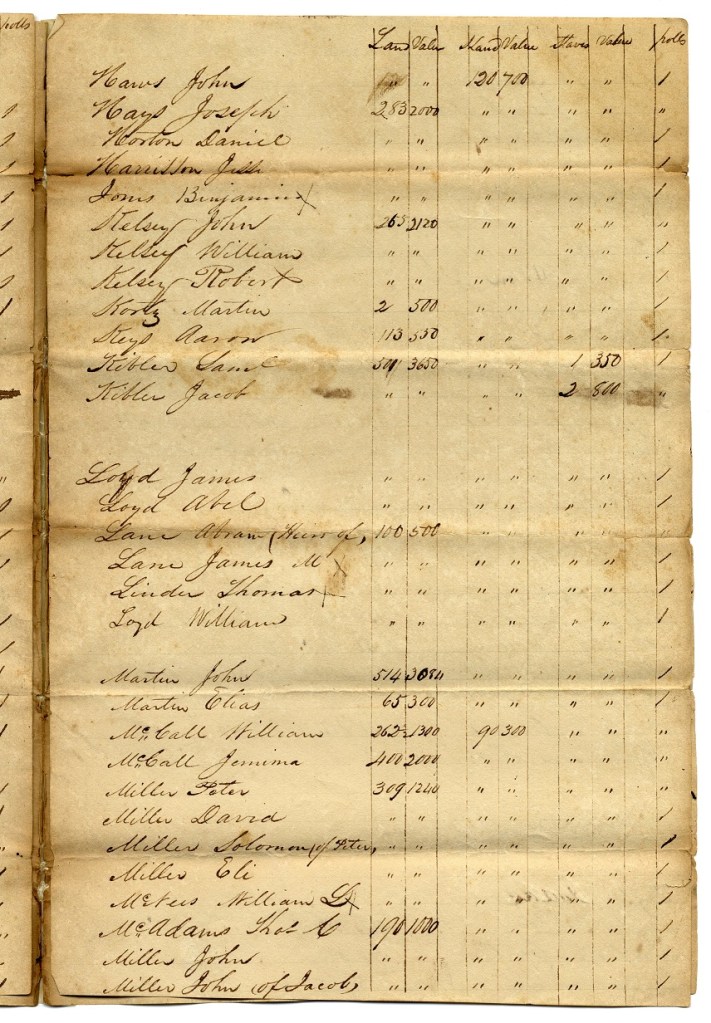 polls
Land Value Land Value Slaves Value polls
Haws John " 120 700 " " 1
Hays Joseph 283 2000 " " " " "
Horton Daniel " " " " " " 1
Harrisson " " " " " " 1
Jones Benjamin x " " " " " " 1
Kelsey John 265 2120 " " " " "
Kelsey William " " " " " " 1
Kelsey Robert " " " " " " 1
Kortz Martin 2 500 " " " " 1
Keys Aaron 113 550 " " " " 1
Kibler Saml 501 3650 " " 1 350 1
Kibler Jacob " " " " 2 800 "
Loyd James " " " " " " 1
Loyd Abel " " " " " " 1
Lane Abram (Heirs of, 100 500 " " " " "
Lane James M x " " " " " " 1
Linder Thomas x " " " " " " 1
Loyd William " " " " " " 1
Martin John 514 3084 " " " " 1
Martin Elias 65 300 " " " " 1
McCall William 262 1300 90 300 " " "
McCall Jemima 400 2000 " " " " "
Miller Peter 309 1240 " " " " "
Miller David " " " " " " 1
Miller Solomon (of Peter, " " " " " " 1
Miller Eli " " " " " " 1
McNees William D x " " " " " " 1
McAdams Thos C 190 1000 " " " " 1
Miller John " " " " " " 1
Miller John (of Jacob) " " " " " " 1